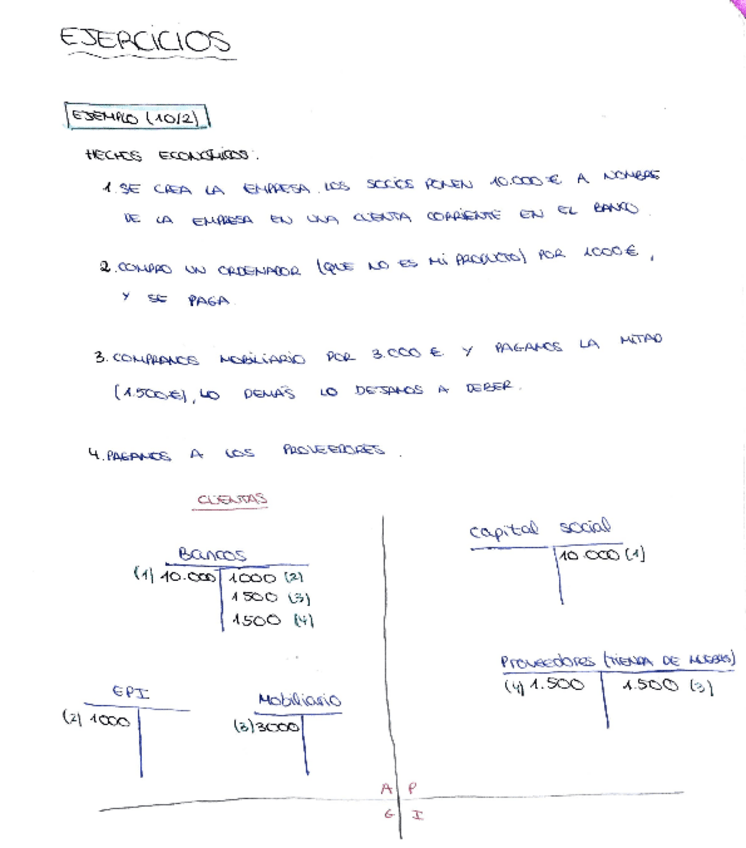 EJERCICIOS
EJEMPLO (10/2)
HECHOS ECONÓMICOS:
1. SE CREA LA EMPRESA. LOS SOCIOS PONEN 10.000 € A NOMBRE
DE LA EMPRESA EN UNA CUENTA CORRIENTE EN EL BANCO.
2. COMPRO UN ORDENADOR (QUE NO ES MI PRODUCTO) POR 1000 €,
Y SE PAGA.
3. COMPRAMOS MOBILIARIO POR 3.000 € Y PAGAMOS LA MITAD
(1.500€), LO DEMÁS LO DEJAMOS A DEBER.
4. PAGAMOS A LOS PROVEEDORES.
CUENTAS
Bancos
(1) 10.000 1000 (2)
1500 (3)
1500 (4)
capital social
10.000 (1)
EPI
(2) 1000
Mobiliario
(3) 3000
Proveedores (TIENDA DE MUEBLES)
(4) 1.500 1.500 (3)
A P
G I